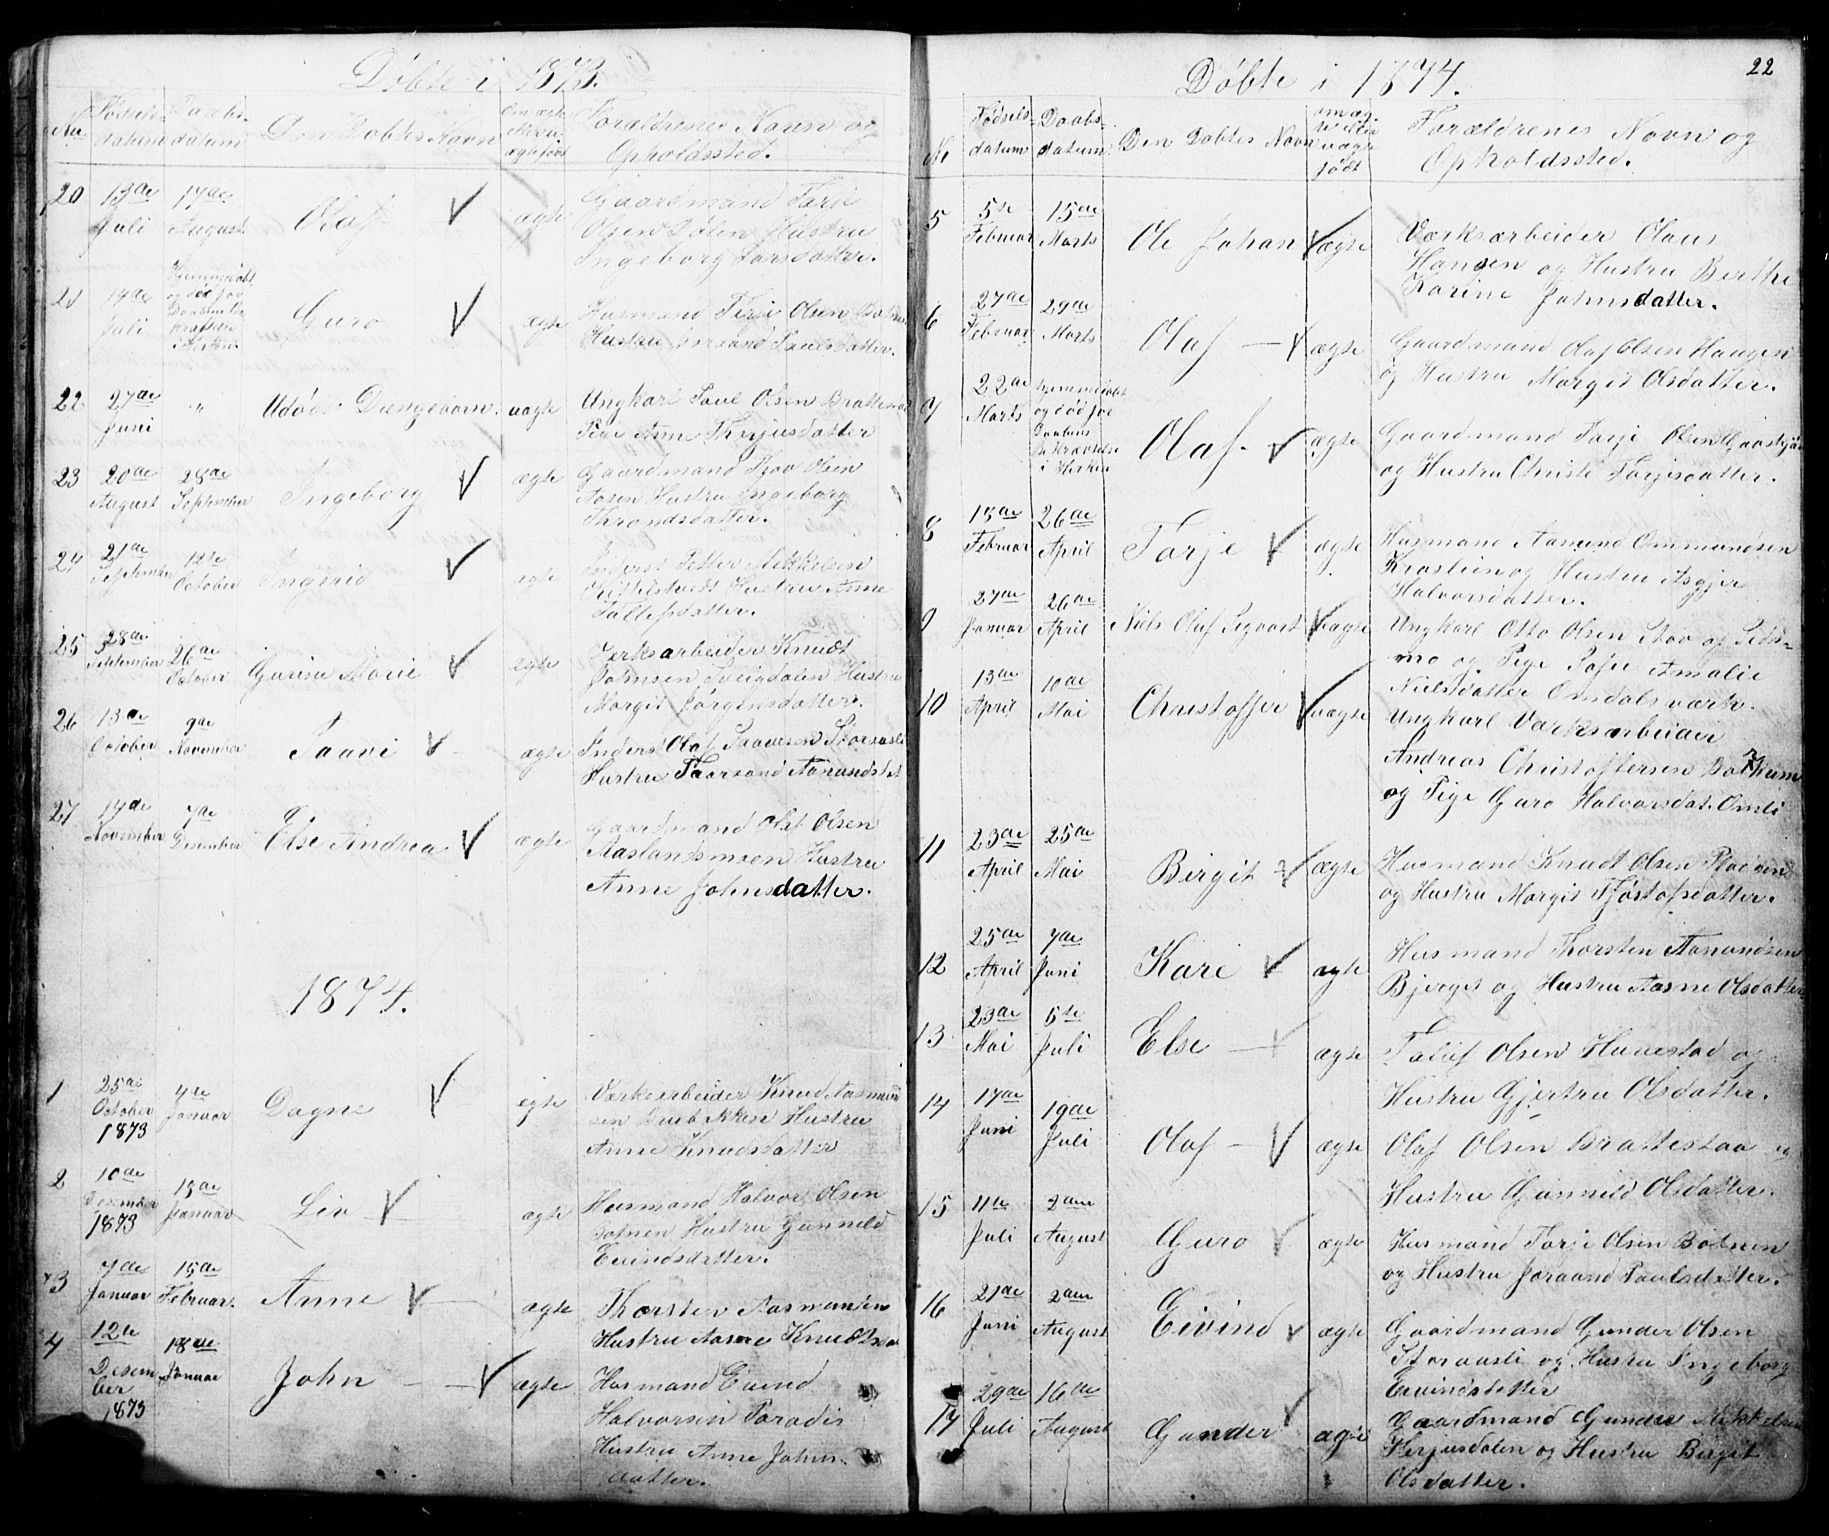 Døbte i 1873.
No
Fødsels-
datum
Daabs-
datum
Den Døbtes Navn
Om ægte
eller u-
ægte født
Forældrenes Navn og
Opholdssted.
20
13de
Juli
17de
August
Olaf
ægte
Gaardmand Tarje
Olsen Dølen Hustru
Ingeborg Larsdatter.
21
14de
Juli
Hjemmedøbt
og død før
i Kirken
Guro
ægte
Husmand Terje Olsen
Hustru Joraand Paulsdatter.
22
27de
Juni
"
Udøbt Drengebarn.
uægte
Ungkarl Paul Olsen
Pige Anne Therjusdatter
23
20de
August
28de
September
Ingeborg
ægte
Gaardmand Tjov Olsen
Aasen Hustru Ingeborg
Throndsdatter.
24
21de
September
12te
October
Ingerid
egte
Inderst Petter Mikkelsen
Hustru Anne
Tallefsdatter.
25
28de
September
26de
October
Gurine Marie
egte
Verksarbeider Knudt
Johnsen Hustru
Margit Jørgensdatter.
26
13de
October
9de
November
Saavi
ægte
Inderst Olaf Saavesen
Hustru Taarand
27
14de
November
7de
Desember
Else Andrea
ægte
Gaardmand Olaf Olsen
Aaslandsmoen Hustru
Anne Johnsdatter.
1874.
1
25de
October
1873
4de
Januar
Dagne
egte
Værksarbeider Knud Aasmund
sen Hustru
Anne Knudsdatter
2
10de
Desember
1873
15de
Januar
Liv
ægte
Husmand Halvor Olsen
Botnen Hustru Gunnild
Eivindsdatter.
3
7de
Januar
15de
Februar.
Anne
ægte
Thorsten Aasmundsen
Hustru Aasne
4
12te
Desem-
ber
1873
18de
Januar
John
ægte
Husmand Eivind
Halvorsen Paradis
Hustru Anne Johns-
datter.
22
Døbte i 1874.
No
Fødsels-
datum
Daabs-
datum
Den Døbtes Navn
om æg-
te eller
uægte
født
Forældrenes Navn og
Opholdssted.
5
5te
Februar
15de
Marts
Ole Johan
ægte
Værksarbeider Olaus
Hansen og Hustru Berthe
Karine Johnsdatter.
6
27de
Februar
29de
Marts
Olaf
ægte
Gaardmand Olaf Olsen Haugen
og Hustru Margit Olsdatter.
7
22de
Marts
Hjemmedøbt
og død før
Daabens
Bekræftelse
i Kirken
Olaf
ægte
Gaardmand Tarje Olsen
og Hustru Christi Tarjesdatter.
8
15de
Februar
26de
April
Tarje
ægte
Husmand Aamund Ommundsen
Krostein og Hustru Asgjer
Halvorsdatter.
9
27de
Januar
26de
April
Niels Olaf Sigvart
uægte
Ungkarl Otto Olsen
og Pige Amalie
Nielsdatter Omdalsværk.
10
13de
April
10de
Mai
Christoffer
uægte
Ungkarl Værksarbeider
Andreas Christoffersen
og Pige Guro Halvorsdat. Omli
11
23de
April
25de
Mai
Birgit
ægte
Husmand Knudt Olsen
og Hustru Margit Tjøstofsdatter.
12
25de
April
7de
Juni
Kari
ægte
Husmand Thorsten Aanundsen
Bjerget og Hustru Aasne Olsdatter
13
23de
Mai
5te
Juli
Else
ægte
Tallef Olsen Hunestad og
Hustru Gjertru Olsdatter.
14
17de
Juni
19de
Juli
Olaf
ægte
Olaf Olsen Brattestaa og
Hustru Gunnild Olsdatter.
15
11te
Juli
2den
August
Guro
ægte
Husmand Tarje Olsen Botnen
og Hustru Joraand Paulsdatter.
16
21de
Juni
2den
August
Eivind
ægte
Gaardmand Gunder Olsen
Storaasli og Hustru Ingeborg
Eivindsdatter
17
29de
Juli
16de
August
Gunder
ægte
Gaardmand Gunder Mikkelsen
Herjusdalen og Hustru Birgit
Olsdatter.